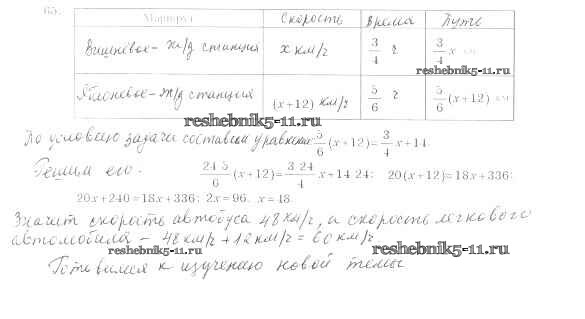 65.
Маршрут Скорость Время Путь
Вишневое - ж/д станция x км/ч 3/4 ч 3/4 x км
reshebnik5-11.ru
Яблоневое - ж/д станция (x+12) км/ч 5/6 ч 5/6 (x+12) км
reshebnik5-11.ru
По условию задачи составим уравнение: 5/6 (x+12) = 3/4 x + 14.
Решим его. 24·5/6 (x+12) = 3·24/4 x + 14·24; 20(x+12) = 18x + 336;
20x + 240 = 18x + 336; 2x = 96. x = 48
Значит скорость автобуса 48 км/ч, а скорость легкового
автомобиля - 48 км/ч + 12 км/ч = 60 км/ч
reshebnik5-11.ru reshebnik5-11.ru
Готовимся к изучению новой темы